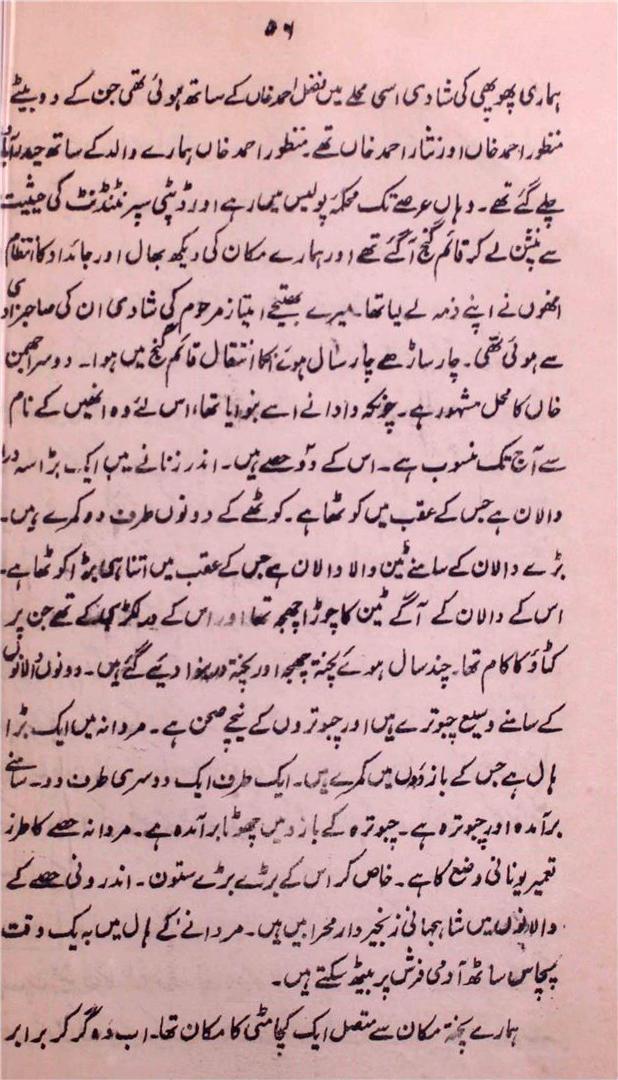 ۵۶
ہماری پھوپھی کی شادی اسی محلے میں فضل احمد خاں کے ساتھ ہوئی تھی جن کے دو بیٹے
منظور احمد خاں اور نثار احمد خاں تھے۔ منظور احمد خاں ہمارے والد کے ساتھ حیدرآباد
چلے گئے تھے۔ وہاں عرصے تک محکمۂ پولیس میں رہے اور ڈپٹی سپرنٹنڈنٹ کی حیثیت
سے پنشن لے کر قائم گنج آ گئے تھے اور ہمارے مکان کی دیکھ بھال اور جائداد کا انتظام
انھوں نے اپنے ذمہ لے لیا تھا۔ میرے بھتیجے امتیاز مرحوم کی شادی ان کی صاحبزادی
سے ہوئی تھی۔ چار ساڑھے چار سال ہوئے انکا انتقال قائم گنج میں ہوا۔ دوسرا جھمن
خاں کا محل مشہور ہے۔ چونکہ دادا نے اسے بنوایا تھا، اس لئے وہ انھیں کے نام
سے آج تک منسوب ہے۔ اس کے دو حصے ہیں۔ اندر زنانے میں ایک بڑا سہ درا
دالان ہے جس کے عقب میں کوٹھا ہے۔ کوٹھے کے دونوں طرف دو کمرے ہیں۔
بڑے دالان کے سامنے ٹین والا دالان ہے جس کے عقب میں اتنا ہی بڑا کوٹھا ہے۔
اس کے دالان کے آگے ٹین کا چوڑا چھجہ تھا اور اس کے در لکڑی کے تھے جن پر
کٹاؤ کا کام تھا۔ چند سال ہوئے پختہ چھجہ اور پختہ در بنوا دیئے گئے ہیں۔ دونوں دالانوں
کے سامنے وسیع چبوترے ہیں اور چبوتروں کے نیچے صحن ہے۔ مردانہ میں ایک بڑا
ہال ہے جس کے بازوؤں میں کمرے ہیں۔ ایک طرف ایک دوسری طرف دو۔ سامنے
برآمدہ اور چبوترہ ہے۔ چبوترہ کے بازو میں چھوٹا برآمدہ ہے۔ مردانہ حصے کا طرز
تعمیر یونانی وضع کا ہے۔ خاص کر اس کے بڑے بڑے ستون۔ اندرونی حصے کے
دالانوں میں شاہجہانی زنجیر دار محرابیں ہیں۔ مردانے کے ہال میں بہ یک وقت
پچاس ساٹھ آدمی فرش پر بیٹھ سکتے ہیں۔
ہمارے پختہ مکان سے متصل ایک کچا مٹی کا مکان تھا۔ اب وہ گر کر برابر